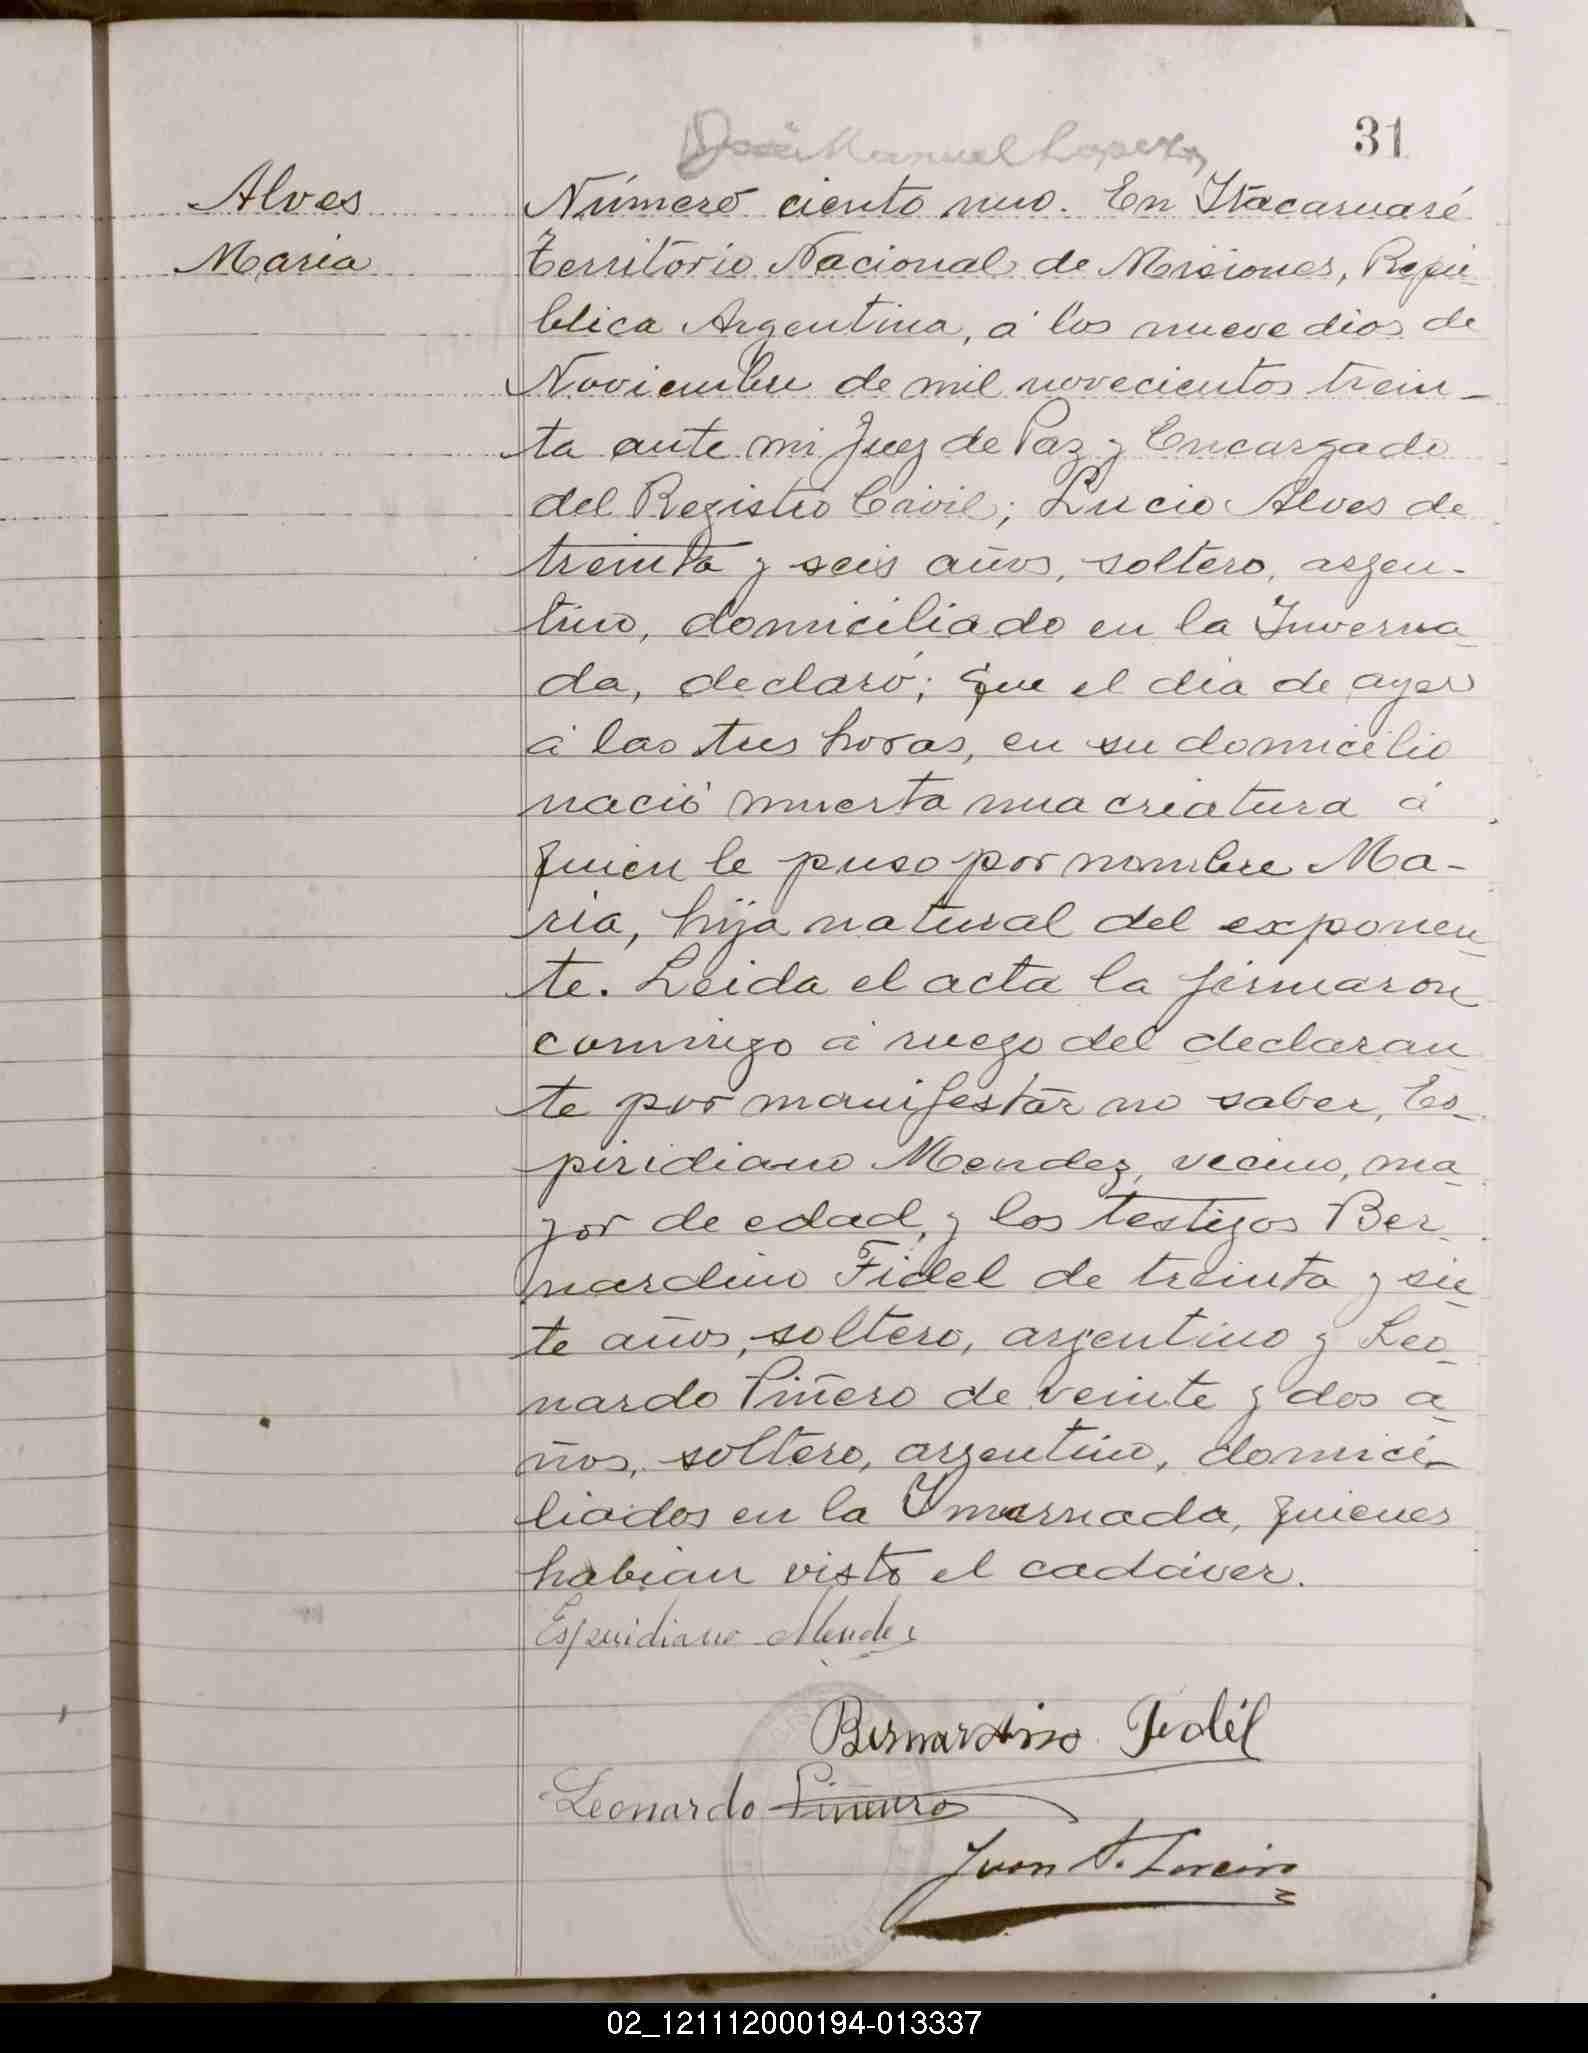 31
José Manuel Lopez
Alves
Maria
Número ciento uno. En Itacaruaré
Territorio Nacional de Misiones, Repú-
blica Argentina, á los nueve dias de
Noviembre de mil novecientos trein-
ta ante mi Juez de Paz y Encargado
del Registro Civil; Lucio Alves de
treinta y seis años, soltero, argen-
tino, domiciliado en la Inverna-
da, declaró; Que el dia de ayer
á las tres horas, en su domicilio
nació muerta una criatura á
quien le puso por nombre Ma-
ria, hija natural del exponen-
te. Leida el acta la firmaron
conmigo á ruego del declaran-
te por manifestar no saber, Es-
piridiano Mendez, vecino, ma-
yor de edad, y los testigos Ber-
nardino Fidel de treinta y sie-
te años, soltero, argentino y Leo-
nardo Piñero de veinte y dos a-
ños, soltero, argentino, domici-
liados en la Imernada, quienes
habian visto el cadáver.
Espiridiano Mendez
Bernardino Fidél
Leonardo Piñeiro
Juan
02_121112000194-013337